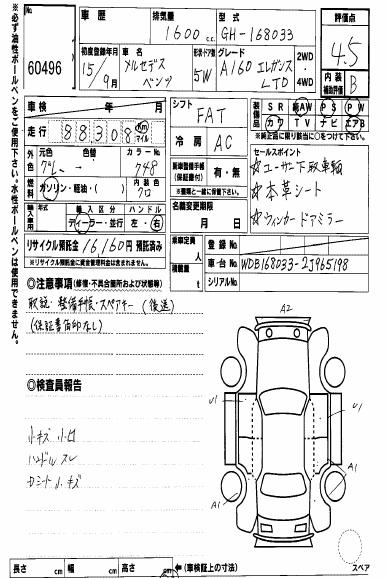 ※必ず油性ボールペンをご使用下さい。水性ボールペンは使用できません。
No
60496
車歴
排気量
1600 c.c.
型式
GH-168033
評価点
4.5
内装補助評価
B
初度登録年月
15/9月
車名
メルセデス
ベンツ
形状・ドア数
5W
グレード
A160 エレガンス
LTD
2WD・4WD
車検 年 月
走行 88308 Km マイル
シフト
FAT
冷房
AC
装備品
SR 純AW PS PW
カワ TV ナビ エアB
※純正品に限り該当に○をつけて下さい。
外装色 元色 色替 カラーNo
748
燃料 ガソリン・軽油・( )
内装色
クロ
輸入車用 輸入区分 ハンドル
ディーラー・並行 左・右
リサイクル預託金 16160円 預託済み
※リサイクル預託金に資金管理料金は含まれません。
(保証書付)
有・無
※車種と一緒に保管下さい。
名義変更期限
月 日
乗車定員 人
積載量 t
セールスポイント
☆ユーザー下取車輌
☆本革シート
☆ウィンカードアミラー
登録No
車台No WDB168033-2J965198
シリアルNo
◎注意事項(修復・不具合箇所および状態等)
取説・整備手帳・スペアキー(後送)
(保証書質印なし)
◎検査員報告
小キズ 小凹
ハンドル スレ
シート小キズ
A2
U1
U1
A1
A1
スペア
長さ cm 幅 cm 高さ cm ←(車検証上の寸法)